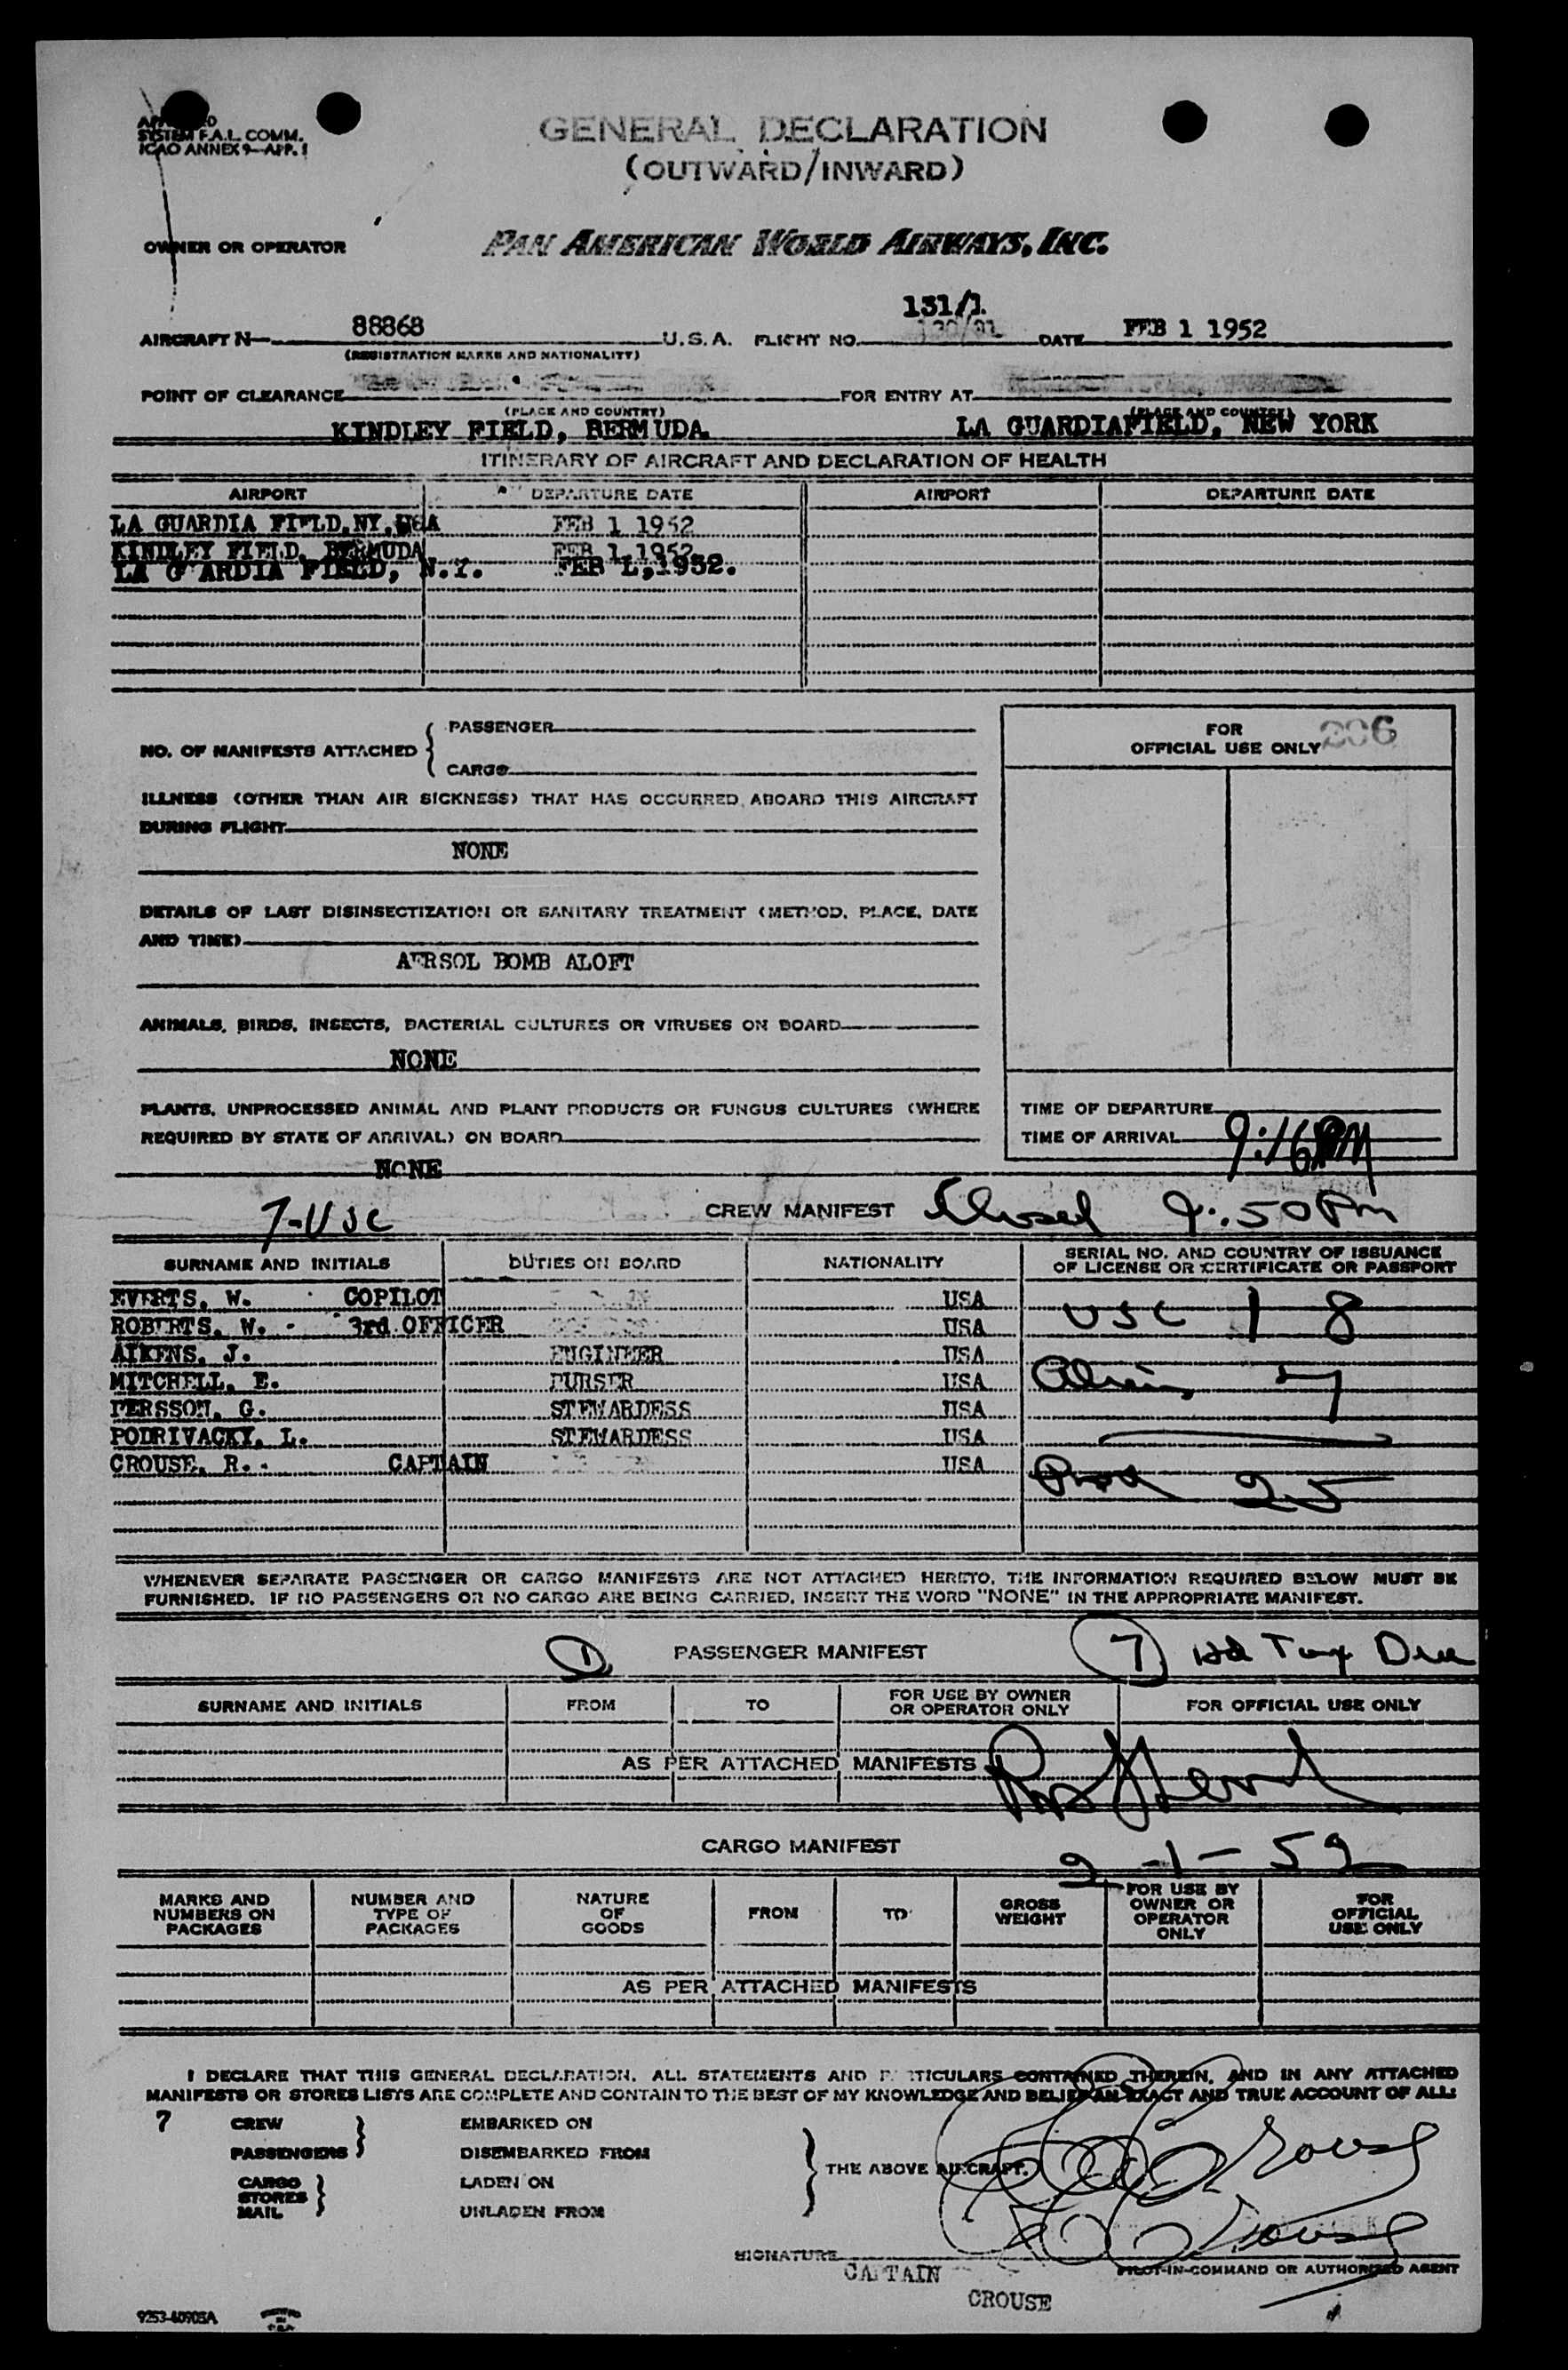 SYSTEM F.A.L. COMM.
ICAO ANNEX 9—APP. 1
GENERAL DECLARATION
(OUTWARD/INWARD)
OWNER OR OPERATOR PAN AMERICAN WORLD AIRWAYS, INC.
131/1
AIRCRAFT N— 88868 U.S.A. FLIGHT NO. DATE FEB 1 1952
(REGISTRATION MARKS AND NATIONALITY)
POINT OF CLEARANCE FOR ENTRY AT
(PLACE AND COUNTRY) (PLACE AND COUNTRY)
KINDLEY FIELD, BERMUDA. LA GUARDIAFIELD, NEW YORK
ITINERARY OF AIRCRAFT AND DECLARATION OF HEALTH
AIRPORT DEPARTURE DATE AIRPORT DEPARTURE DATE
LA GUARDIA FIELD,NY,USA FEB 1 1952
KINDLEY FIELD, BERMUDA FEB 1 1952
LA G ARDIA FIELD, N.Y. FEB 1,1952.
NO. OF MANIFESTS ATTACHED { PASSENGER
CARGO
FOR
OFFICIAL USE ONLY 206
ILLNESS (OTHER THAN AIR SICKNESS) THAT HAS OCCURRED ABOARD THIS AIRCRAFT
DURING FLIGHT
NONE
DETAILS OF LAST DISINSECTIZATION OR SANITARY TREATMENT (METHOD, PLACE, DATE
AND TIME)
AERSOL BOMB ALOFT
ANIMALS, BIRDS, INSECTS, BACTERIAL CULTURES OR VIRUSES ON BOARD
NONE
PLANTS, UNPROCESSED ANIMAL AND PLANT PRODUCTS OR FUNGUS CULTURES (WHERE
REQUIRED BY STATE OF ARRIVAL) ON BOARD
NONE
TIME OF DEPARTURE
TIME OF ARRIVAL 9:16 PM
7-USC CREW MANIFEST Closed 9:50 Pm
SURNAME AND INITIALS DUTIES ON BOARD NATIONALITY SERIAL NO. AND COUNTRY OF ISSUANCE
OF LICENSE OR CERTIFICATE OR PASSPORT
EVERTS, W. COPILOT USA USC 18
ROBERTS, W. 3rd OFFICER USA
AIKENS, J. ENGINEER USA
MITCHELL, E. PURSER USA Aliens 7
PERSSON, G. STEWARDESS USA
PODRIVACKY, L. STEWARDESS USA
CROUSE, R. CAPTAIN USA 25
WHENEVER SEPARATE PASSENGER OR CARGO MANIFESTS ARE NOT ATTACHED HERETO, THE INFORMATION REQUIRED BELOW MUST BE
FURNISHED. IF NO PASSENGERS OR NO CARGO ARE BEING CARRIED, INSERT THE WORD "NONE" IN THE APPROPRIATE MANIFEST.
1 PASSENGER MANIFEST 7 Hd Tax Due
SURNAME AND INITIALS FROM TO FOR USE BY OWNER
OR OPERATOR ONLY FOR OFFICIAL USE ONLY
AS PER ATTACHED MANIFESTS
CARGO MANIFEST 2-1-52
MARKS AND
NUMBERS ON
PACKAGES NUMBER AND
TYPE OF
PACKAGES NATURE
OF
GOODS FROM TO GROSS
WEIGHT FOR USE BY
OWNER OR
OPERATOR
ONLY FOR
OFFICIAL
USE ONLY
AS PER ATTACHED MANIFESTS
I DECLARE THAT THIS GENERAL DECLARATION, ALL STATEMENTS AND PARTICULARS CONTAINED THEREIN, AND IN ANY ATTACHED
MANIFESTS OR STORES LISTS ARE COMPLETE AND CONTAIN TO THE BEST OF MY KNOWLEDGE AND BELIEF AN EXACT AND TRUE ACCOUNT OF ALL:
7 CREW EMBARKED ON
PASSENGERS DISEMBARKED FROM
CARGO LADEN ON THE ABOVE AIRCRAFT.
STORES
MAIL UNLADEN FROM
Crouse
Crouse
SIGNATURE
CAPTAIN PILOT-IN-COMMAND OR AUTHORIZED AGENT
CROUSE
9253-40905A